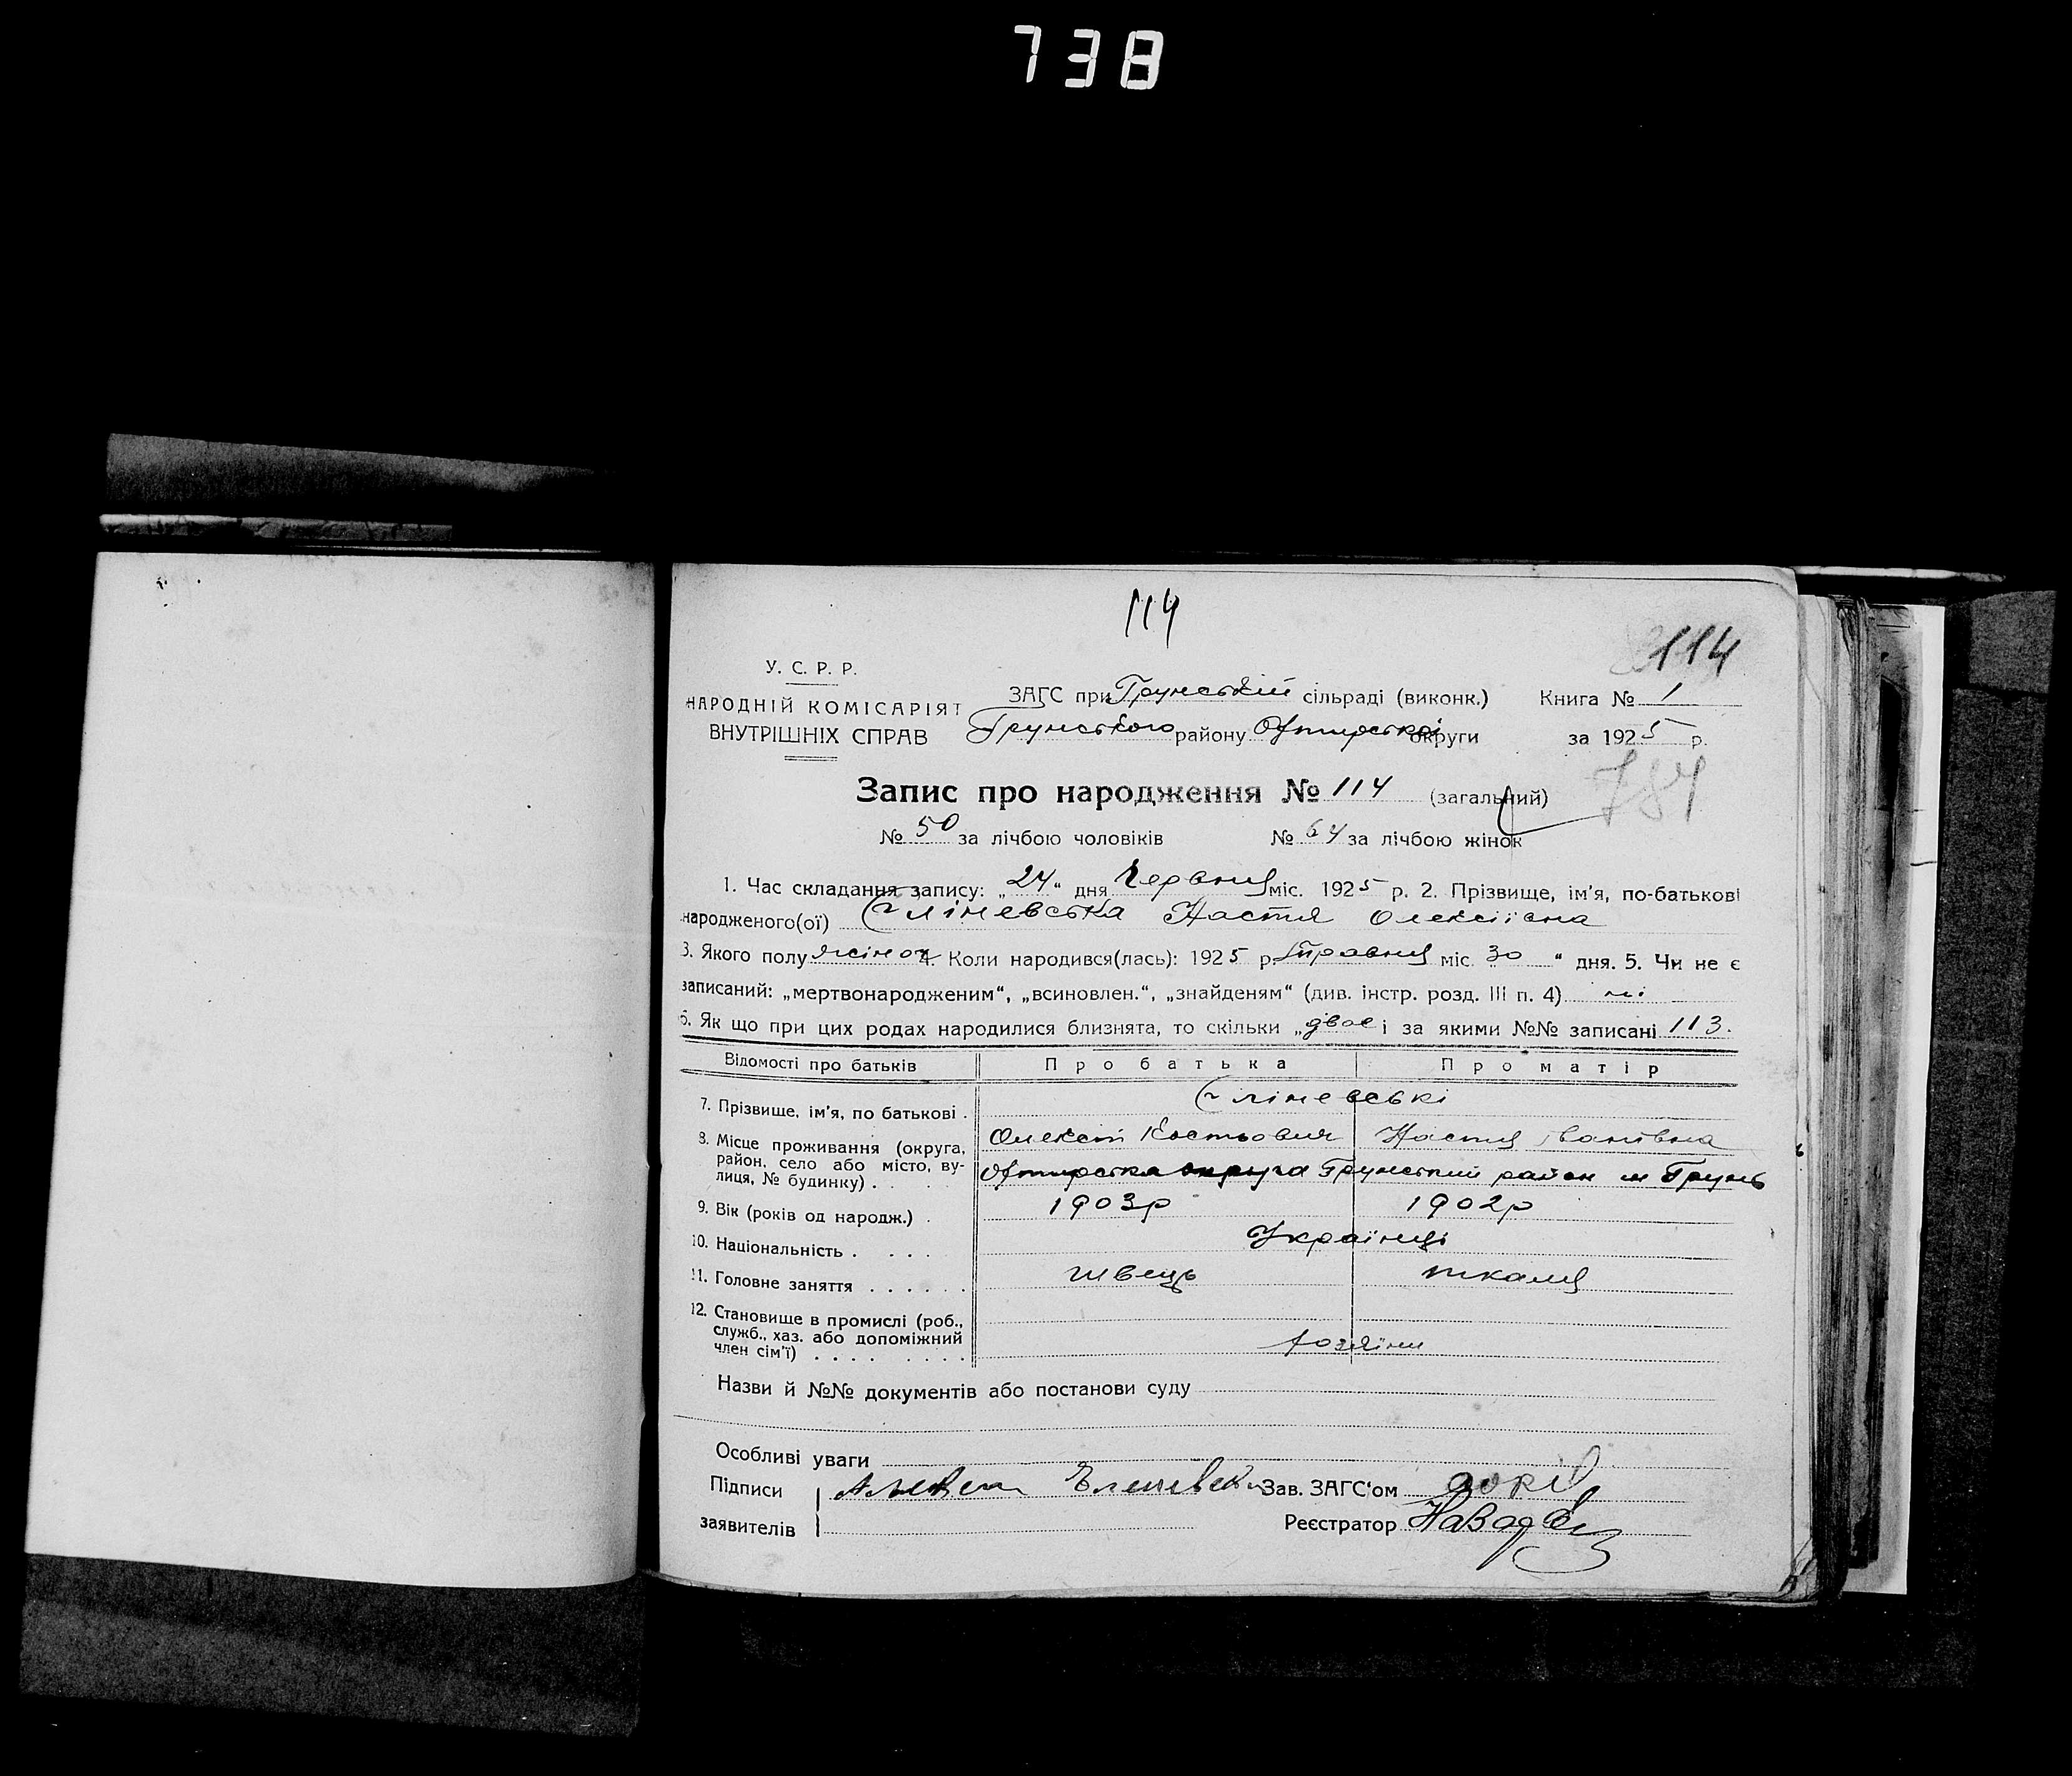 738
114
114
У. С. Р. Р.
НАРОДНІЙ КОМІСАРІЯТ
ВНУТРІШНІХ СПРАВ
ЗАГС при Грунській сільраді (виконк.) Книга № 1
Грунського району Охтирської округи за 1925 р.
784
Запис про народження № 114 (загальний)
№ 50 за лічбою чоловіків № 64 за лічбою жінок
1. Час складання запису: „24“ дня Червня міс. 1925 р. 2. Прізвище, ім'я, по-батькові
народженого(ої) Яліневська Настя Олексіївна
3. Якого полу жіноч 4. Коли народився(лась): 1925 р. Травня міс. 30 “ дня. 5. Чи не є
записаний: „мертвонародженим“, „всиновлен.“, „знайденям“ (див. інстр. розд. III п. 4) ні
6. Як що при цих родах народилися близнята, то скільки „двоє і за якими №№ записані 113.
Відомості про батьків Про батька Про матір
7. Прізвище, ім'я, по батькові . Яліневські
Олексій Костьович Настя Іванівна
8. Місце проживання (округа,
район, село або місто, ву-
лиця, № будинку) . . . . Охтирська округа Грунський район м Грунь
9. Вік (років од народж.) . 1903р 1902р
10. Національність . . . . Українці
11. Головне заняття . . . . . . швець ткаля
12. Становище в промислі (роб.,
служб., хаз. або допоміжний
член сім'ї) . . . . . . . . хозяїни
Назви й №№ документів або постанови суду
Особливі уваги
Підписи Зав. ЗАГС'ом
заявителів Реєстратор